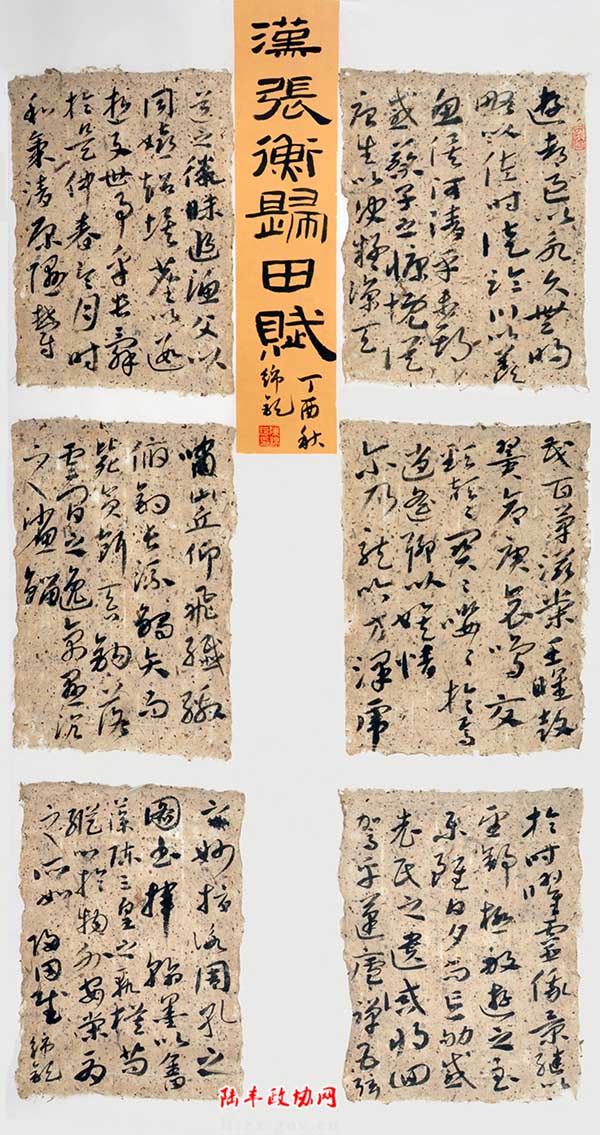 漢張衡歸田賦
丁酉秋
遊都邑以永久無明
略以佐時徒臨川以羨
魚俟河清乎未期
感蔡子之慷慨從
唐生以決疑諒天
道之微昧追漁父以
同嬉超埃塵以遐
逝與世事乎長辭
於是仲春令月時
和氣清原隰鬱
茂百草滋榮王雎鼓
翼倉庚哀鳴交
頸頡頏關關嚶嚶於焉
逍遙聊以娛情
尔乃龍吟方澤虎
嘯山丘仰飛纖繳
俯釣長流觸矢而
斃貪餌吞鉤落
雲間之逸禽懸淵沉
之魦鰡
於時曜靈俄景繼以
望舒極般遊之至
樂雖日夕而忘劬感
老氏之遺誡將回
駕乎蓬廬彈五弦
之妙指詠周孔之
圖書揮翰墨以奮
藻陳三皇之軌模苟
縱心於物外安榮
之所如 歸田賦
陆丰政协网